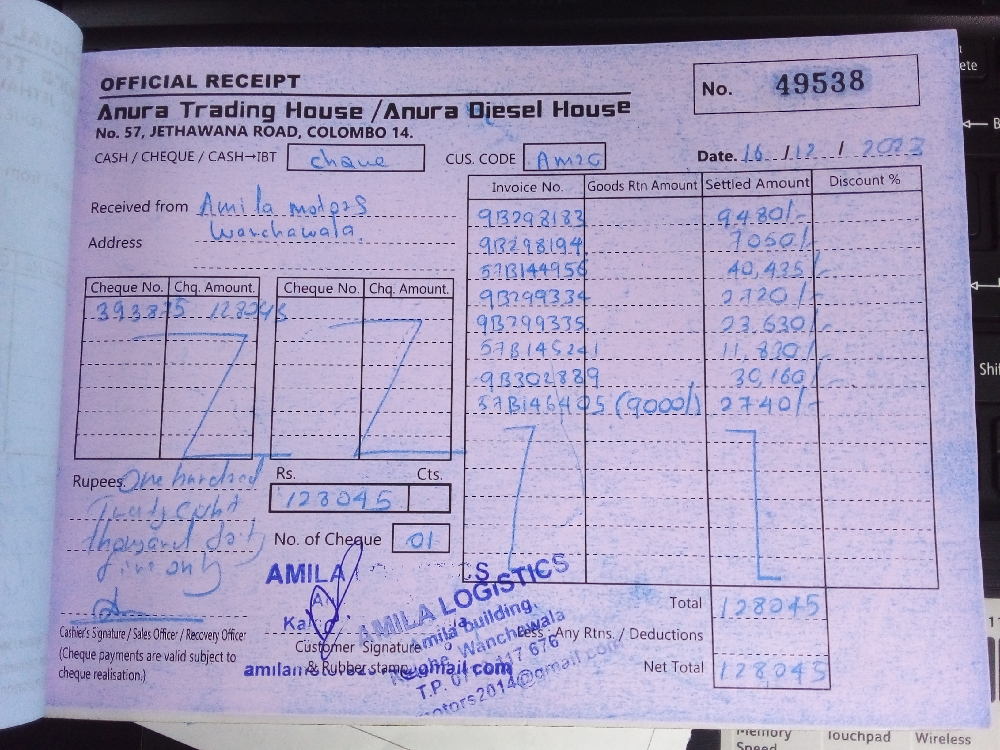 OFFICIAL RECEIPT
No. 49538
Anura Trading House / Anura Diesel House
No. 57, JETHAWANA ROAD, COLOMBO 14.
CASH / CHEQUE / CASH→IBT
CUS. CODE
Date. 16 / 12 / 2023
Received from Amila motors
Wanchawala
Address
Invoice No. Goods Rtn Amount Settled Amount Discount %
9B298183 9480/-
9B298194 7050/-
57B144956 40,435/-
9B299334 2720/-
9B299335 23,630/-
57B145241 11,830/-
9B302889 30,160/-
57B146405 (9000/) 2740/-
Cheque No. Chq. Amount. Cheque No. Chq. Amount.
393875 128045
Rupees. One hundred
Twenty eight
thousand forty
five only
Rs. Cts.
128045
No. of Cheque 01
Total 128045
Less - Any Rtns. / Deductions
Net Total 128045
Cashier's Signature / Sales Officer / Recovery Officer
(Cheque payments are valid subject to
cheque realisation.)
AMILA
Customer Signature
& Rubber stamp
gmail.com
AMILA LOGISTICS
Amila building,
Wanchawala
T.P.
otors2014@gmail.com
Memory
Speed
Touchpad
Wireless